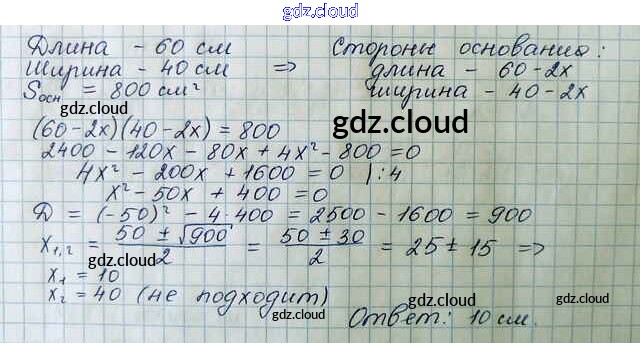 gdz.cloud
Длина - 60 см
Ширина - 40 см ⇒
Sосн = 800 см²
Стороны основания:
длина - 60-2x
ширина - 40-2x
gdz.cloud
gdz.cloud
(60-2x)(40-2x) = 800
gdz.cloud
2400 - 120x - 80x + 4x² - 800 = 0
4x² - 200x + 1600 = 0 | :4
gdz.cloud
x² - 50x + 400 = 0
Д = (-50)² - 4·400 = 2500 - 1600 = 900
x₁,₂ = (50 ± √900)/2 = (50 ± 30)/2 = 25 ± 15 ⇒
gdz.cloud
x₁ = 10
x₂ = 40 (не подходит)
gdz.cloud
gdz.cloud
gdz.cloud
Ответ: 10 см.